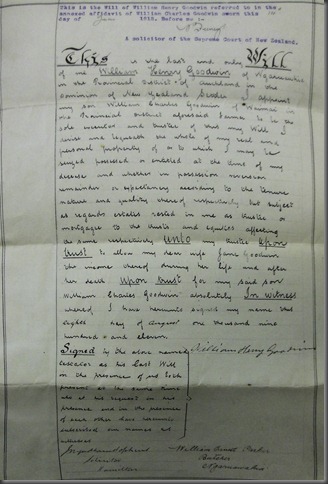 This is the Will of William Henry Goodwin referred to in the
annexed affidavit of William Charles Goodwin sworn this
day of June 1918. Before me :-
A solicitor of the Supreme Court of New Zealand.
This is the last and under Will
of me William Henry Goodwin of Ngaruawahia
in the Provincial District of Auckland in the
Dominion of New Zealand I appoint
my son William Charles Goodwin of
the Provincial District aforesaid to be the
sole executor and trustee of this my Will I
devise and bequeath the whole of my real and
personal property of or to which I may be
seized possessed or entitled at the time of my
decease and whether in possession reversion
remainder or expectancy according to the tenure
nature and quality thereof respectively but subject
as regards estates vested in me as trustee or
mortgagee to the trusts and equities affecting
the same respectively UNTO my trustee Upon
trust to allow my dear wife Jane Goodwin
the income thereof during her life and after
her death Upon trust for my said son
William Charles Goodwin absolutely In witness
whereof I have hereunto signed my name this
eighth day of August one thousand nine
hundred and eleven.
Signed by the above named
testator as his last Will
in the presence of us both
present at the same time
who at his request in his
presence and in the presence
of each other have hereunto
subscribed our names as
witnesses
William Henry Goodwin
Solicitor
Hamilton
William
Butcher
Ngaruawahia